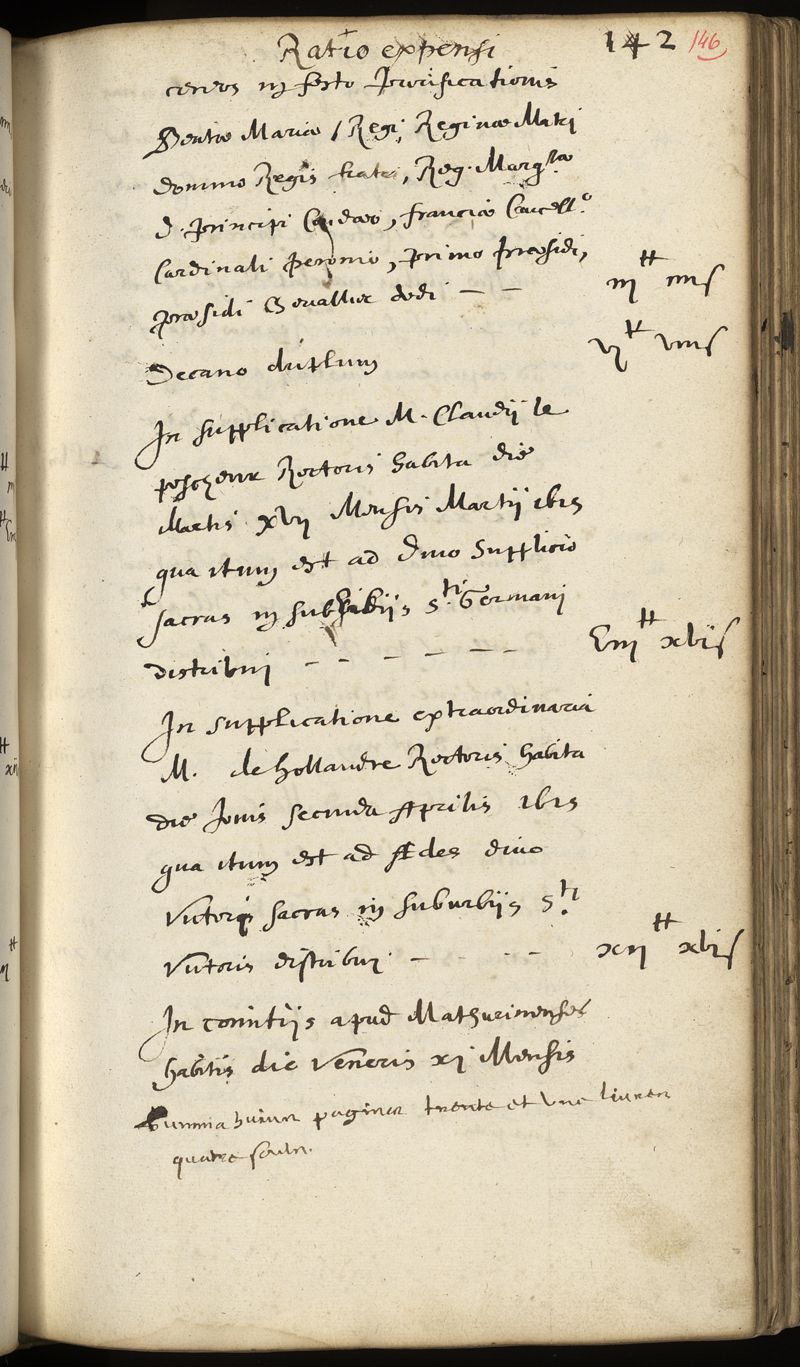 Ratio expensi 142 146
cereos in festo Purificationis
Beatæ Mariæ / Regi, Reginæ Matri
domino Regis fratri, Reg. Marg.tæ
D. Principi Condæo, franciæ Cancell.o
Cardinali Peronio, primo Præsidi,
præsidi Chevallier dedi — — iij ₶ iiijs
Decano duplum vj ₶ viijs
In supplicatione M. Claudij le
Rectoris habita die
Martis xvij Mensis Martij 1615
qua itum est ad ædes divo Sulplicio
sacras in suburbijs S.ti Germani
distribui — — — — — — viij ₶ xvjs
In supplicatione extraordinaria
M. de hollandre Rectoris habita
die Jovis secunda Aprilis 1615
qua itum est ad Ædes divo
Victori sacras in suburbijs S.ti
Victoris distribui — - - - — xij ₶ xvjs
In comitijs apud Mathurinenses
habitis die Veneris xj Mensis
Summa huius paginæ trente et une livres
quatre soulz.